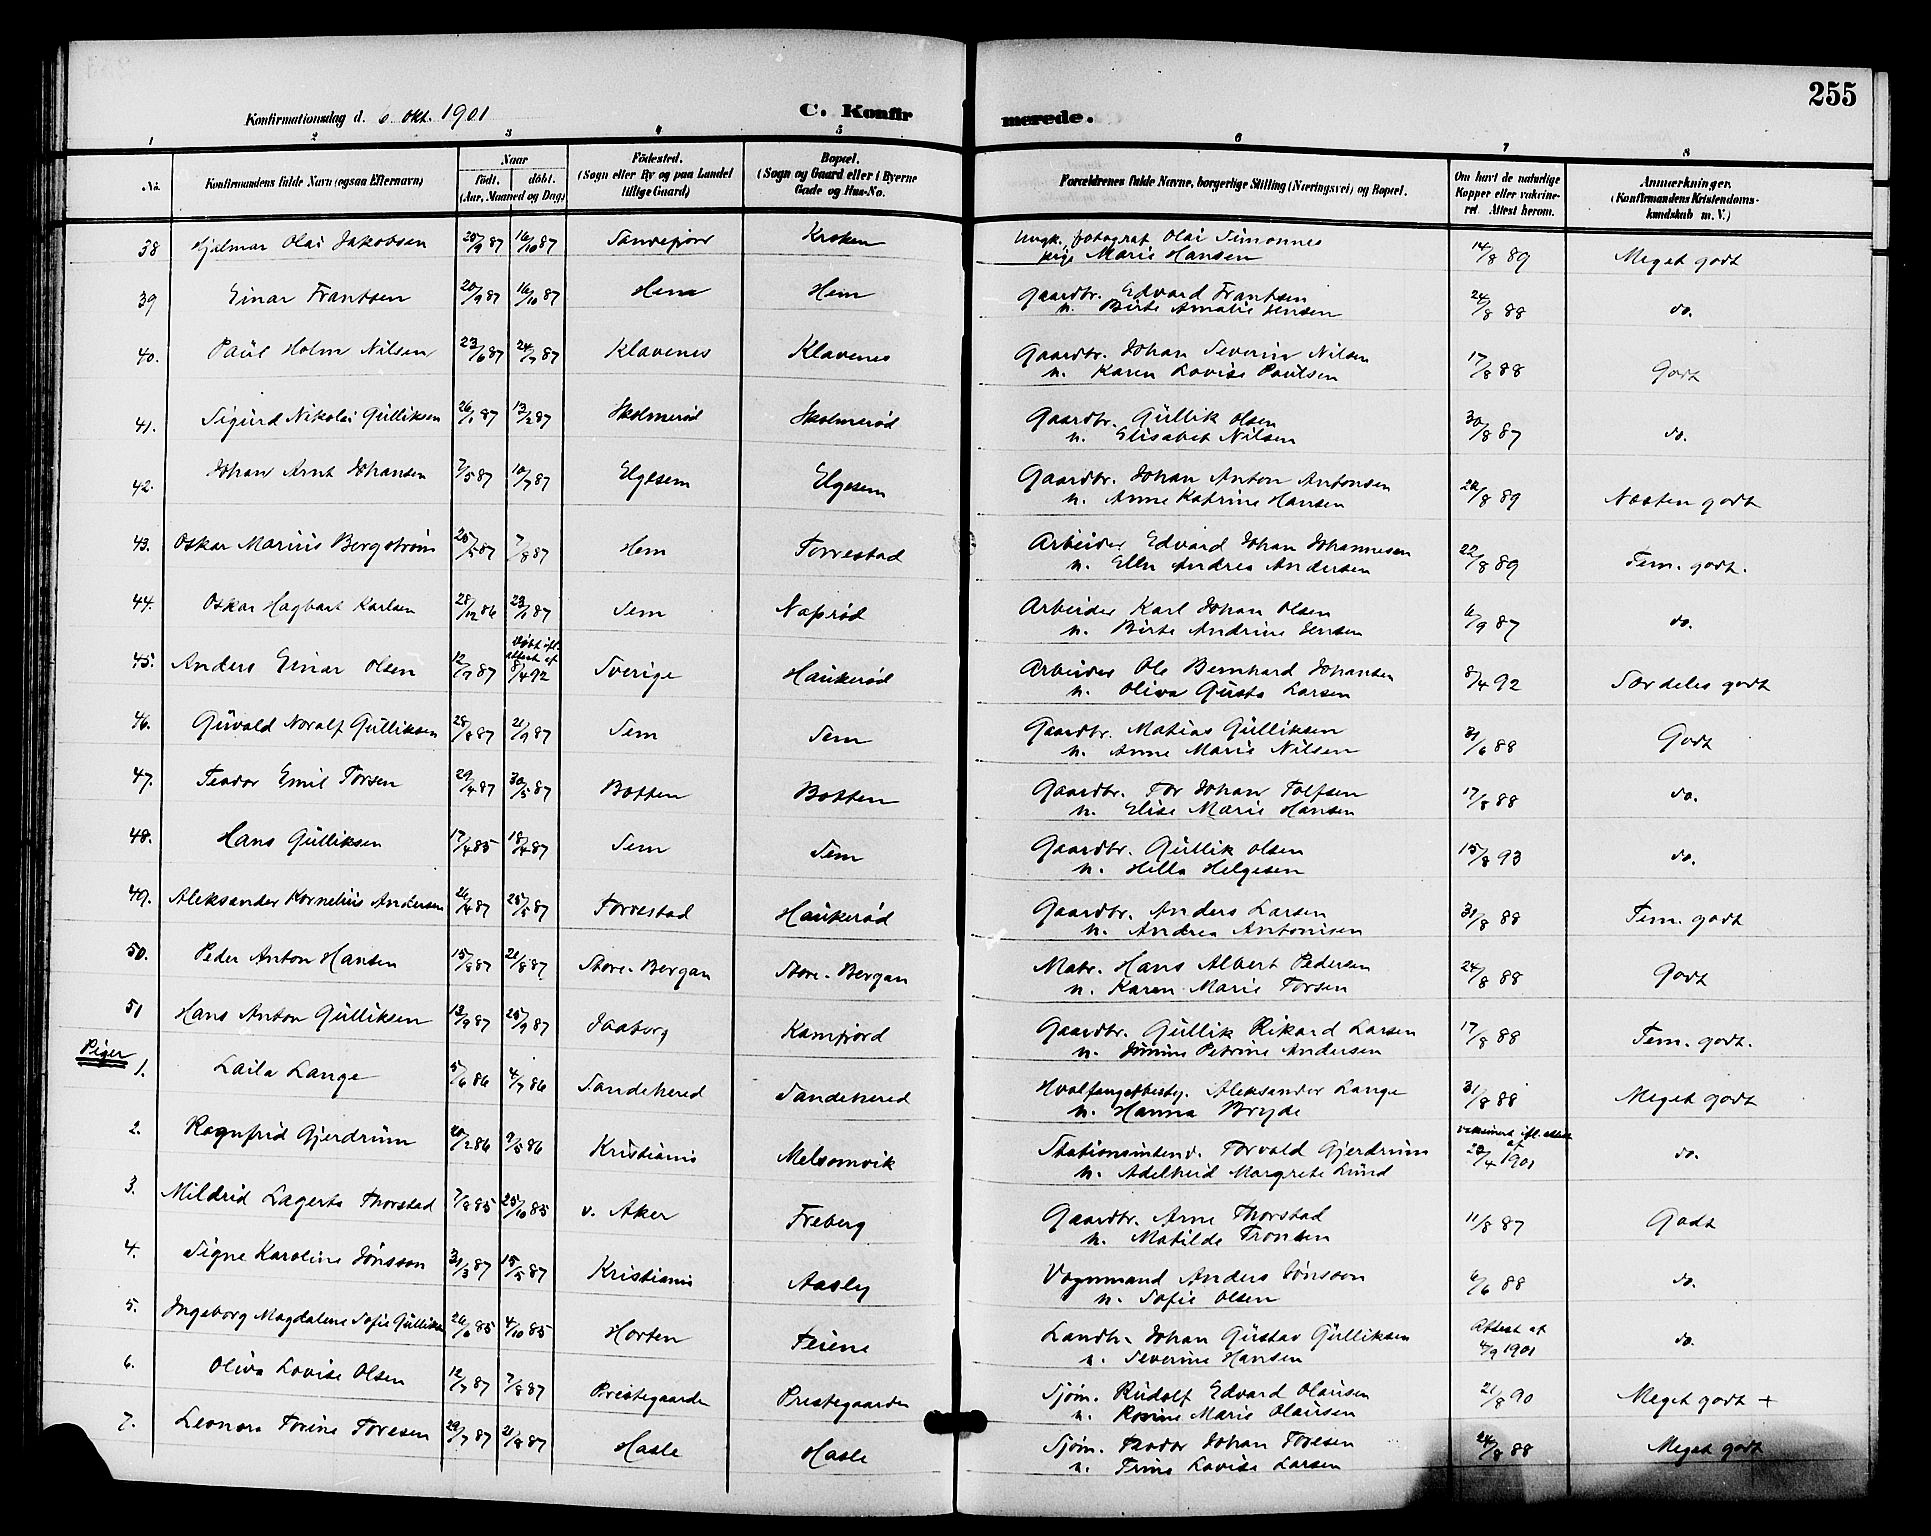 255
Konfirmationsdag d. 6. Okt. 1901
C. Konfirmerede.
1 2 3 4 5 6 7 8
No. | Konfirmandens fulde Navn (ogsaa Efternavn) | Naar født, døbt. (Aar, Maaned og Dag) | Födested. (Sogn eller By og paa Landet tillige Gaard) | Bopæl. (Sogn og Gaard eller i Byerne Gade og Hus-No. | Forældrenes fulde Navne, borgerlige Stilling (Næringsvei) og Bopæl. | Om havt de naturlige Kopper eller vakcineret. Attest herom. | Anmærkninger. (Konfirmandens Kristendomskundskab m. V.)
38 Hjalmar Olai Jakobsen 16/10 87 Sandefjord Kroken Ungk. fotograf Olai Simonnes 14/8 89 Meget godt
pige Marie Hansen
39 Einar Frantsen 20/9 87 16/10 87 Hem Hem Gaardbr. Edvard Frantsen 24/8 88 do.
n. Birte Amalie Jensen
40. Paul Holm Nilsen 23/6 87 24/7 87 Klavenes Klavenes Gaardbr. Johan Severin Nilsen 17/8 88 Godt
n. Karen Lovise Paulsen
41. Sigurd Nikolai Gulliksen 26/1 87 13/2 87 Skolmerød Skolmerød Gaardbr. Gullik Olsen 30/8 87 do.
n. Elisabet Nilsen
42. Johan Arnt Johansen 7/5 87 10/7 87 Elgesem Elgesem Gaardbr. Johan Anton Antonsen 22/8 89 Næsten godt
n. Anne Katrine Hansen
43. Oskar Marius Bergstrøm 25/5 87 7/8 87 Hem Torrestad Arbeider Edvard Johan Johannesen 22/8 89 Tem. godt.
n. Ellen Andrea Andersen
44. Oskar Hagbart Karlsen 28/12 86 23/1 87 Sem Naprød Arbeider Karl Johan Olsen 6/9 87 do.
n. Birte Andrine Jensen
45. Anders Einar Olsen 12/7 87 Døbt ifl. attest af 8/4 92 Sverige Haukerød Arbeider Ole Bernhard Johansen 8/4 92 Særdeles godt
n. Oliva Gusta Larsen
46. Guvald Noralf Gulliksen 28/8 87 21/9 87 Sem Sem Gaardbr. Matias Gulliksen 31/6 88 Godt
n. Anne Marie Nilsen
47. Teodor Emil Torsen 29/4 87 30/5 87 Botten Botten Gaardbr. Tor Johan Tolfsen 17/8 88 do.
n. Elise Marie Hansen
48. Hans Gulliksen 17/4 85 18/4 87 Sem Sem Gaardbr. Gullik Olsen 15/8 93 do.
n. Hella Helgesen
49. Aleksander Kornelius Andersen 26/4 87 25/5 87 Torrestad Haukerød Gaardbr. Anders Larsen 31/8 88 Tem. godt
n. Andrea Antonisen
50. Peder Anton Hansen 15/8 87 21/8 87 Store-Bergan Store-Bergan Matr. Hans Albert Pedersen 24/8 88 Godt
n. Karen Marie Torsen
51 Hans Anton Gulliksen 13/9 87 25/9 87 Jaaberg Kamfjord Gaardbr. Gullik Rikard Larsen 17/8 88 Tem. godt.
n. Petrine Andersen
Piger
1. Laila Lange 5/6 86 4/7 86 Sandeherred Sandeherred Hvalfangstbesty. Aleksander Lange 31/8 88 Meget godt
n. Hanna Bryde
2. Ragnfrid Gjerdrum 20/2 86 9/5 86 Kristiania Melsomvik Stationsintend. Torvald Gjerdrum vaksinert ifl. attest af 20/4 1901 do.
n. Adelheid Margrete Lund
3. Mildrid Lagerta Thorstad 7/8 85 25/10 85 v. Aker Freberg Gaardbr. Arne Thorstad 11/8 87 Godt
n. Matilde Tronsen
4. Signe Karoline Jonsson 31/3 87 15/5 87 Kristiania Aasly Vognmand Anders Jonsson 6/6 88 do.
n. Sofie Olsen
5. Ingeborg Magdalene Sofie Gulliksen 26/6 85 4/10 85 Horten Feiene Landh. Johan Gustav Gulliksen Attest af 4/9 1901 do.
n. Severine Hansen
6. Oliva Lovise Olsen 12/7 87 7/8 87 Prestegaarden Prestegaarden Sjøm. Rudolf Edvard Olausen 21/8 90 Meget godt +
n. Rosine Marie Olausen
7. Leonora Torine Toresen 29/7 87 21/8 87 Hasle Hasle Sjøm. Teodor Johan Toresen 24/8 88 Meget godt
n. Trine Lovise Larsen